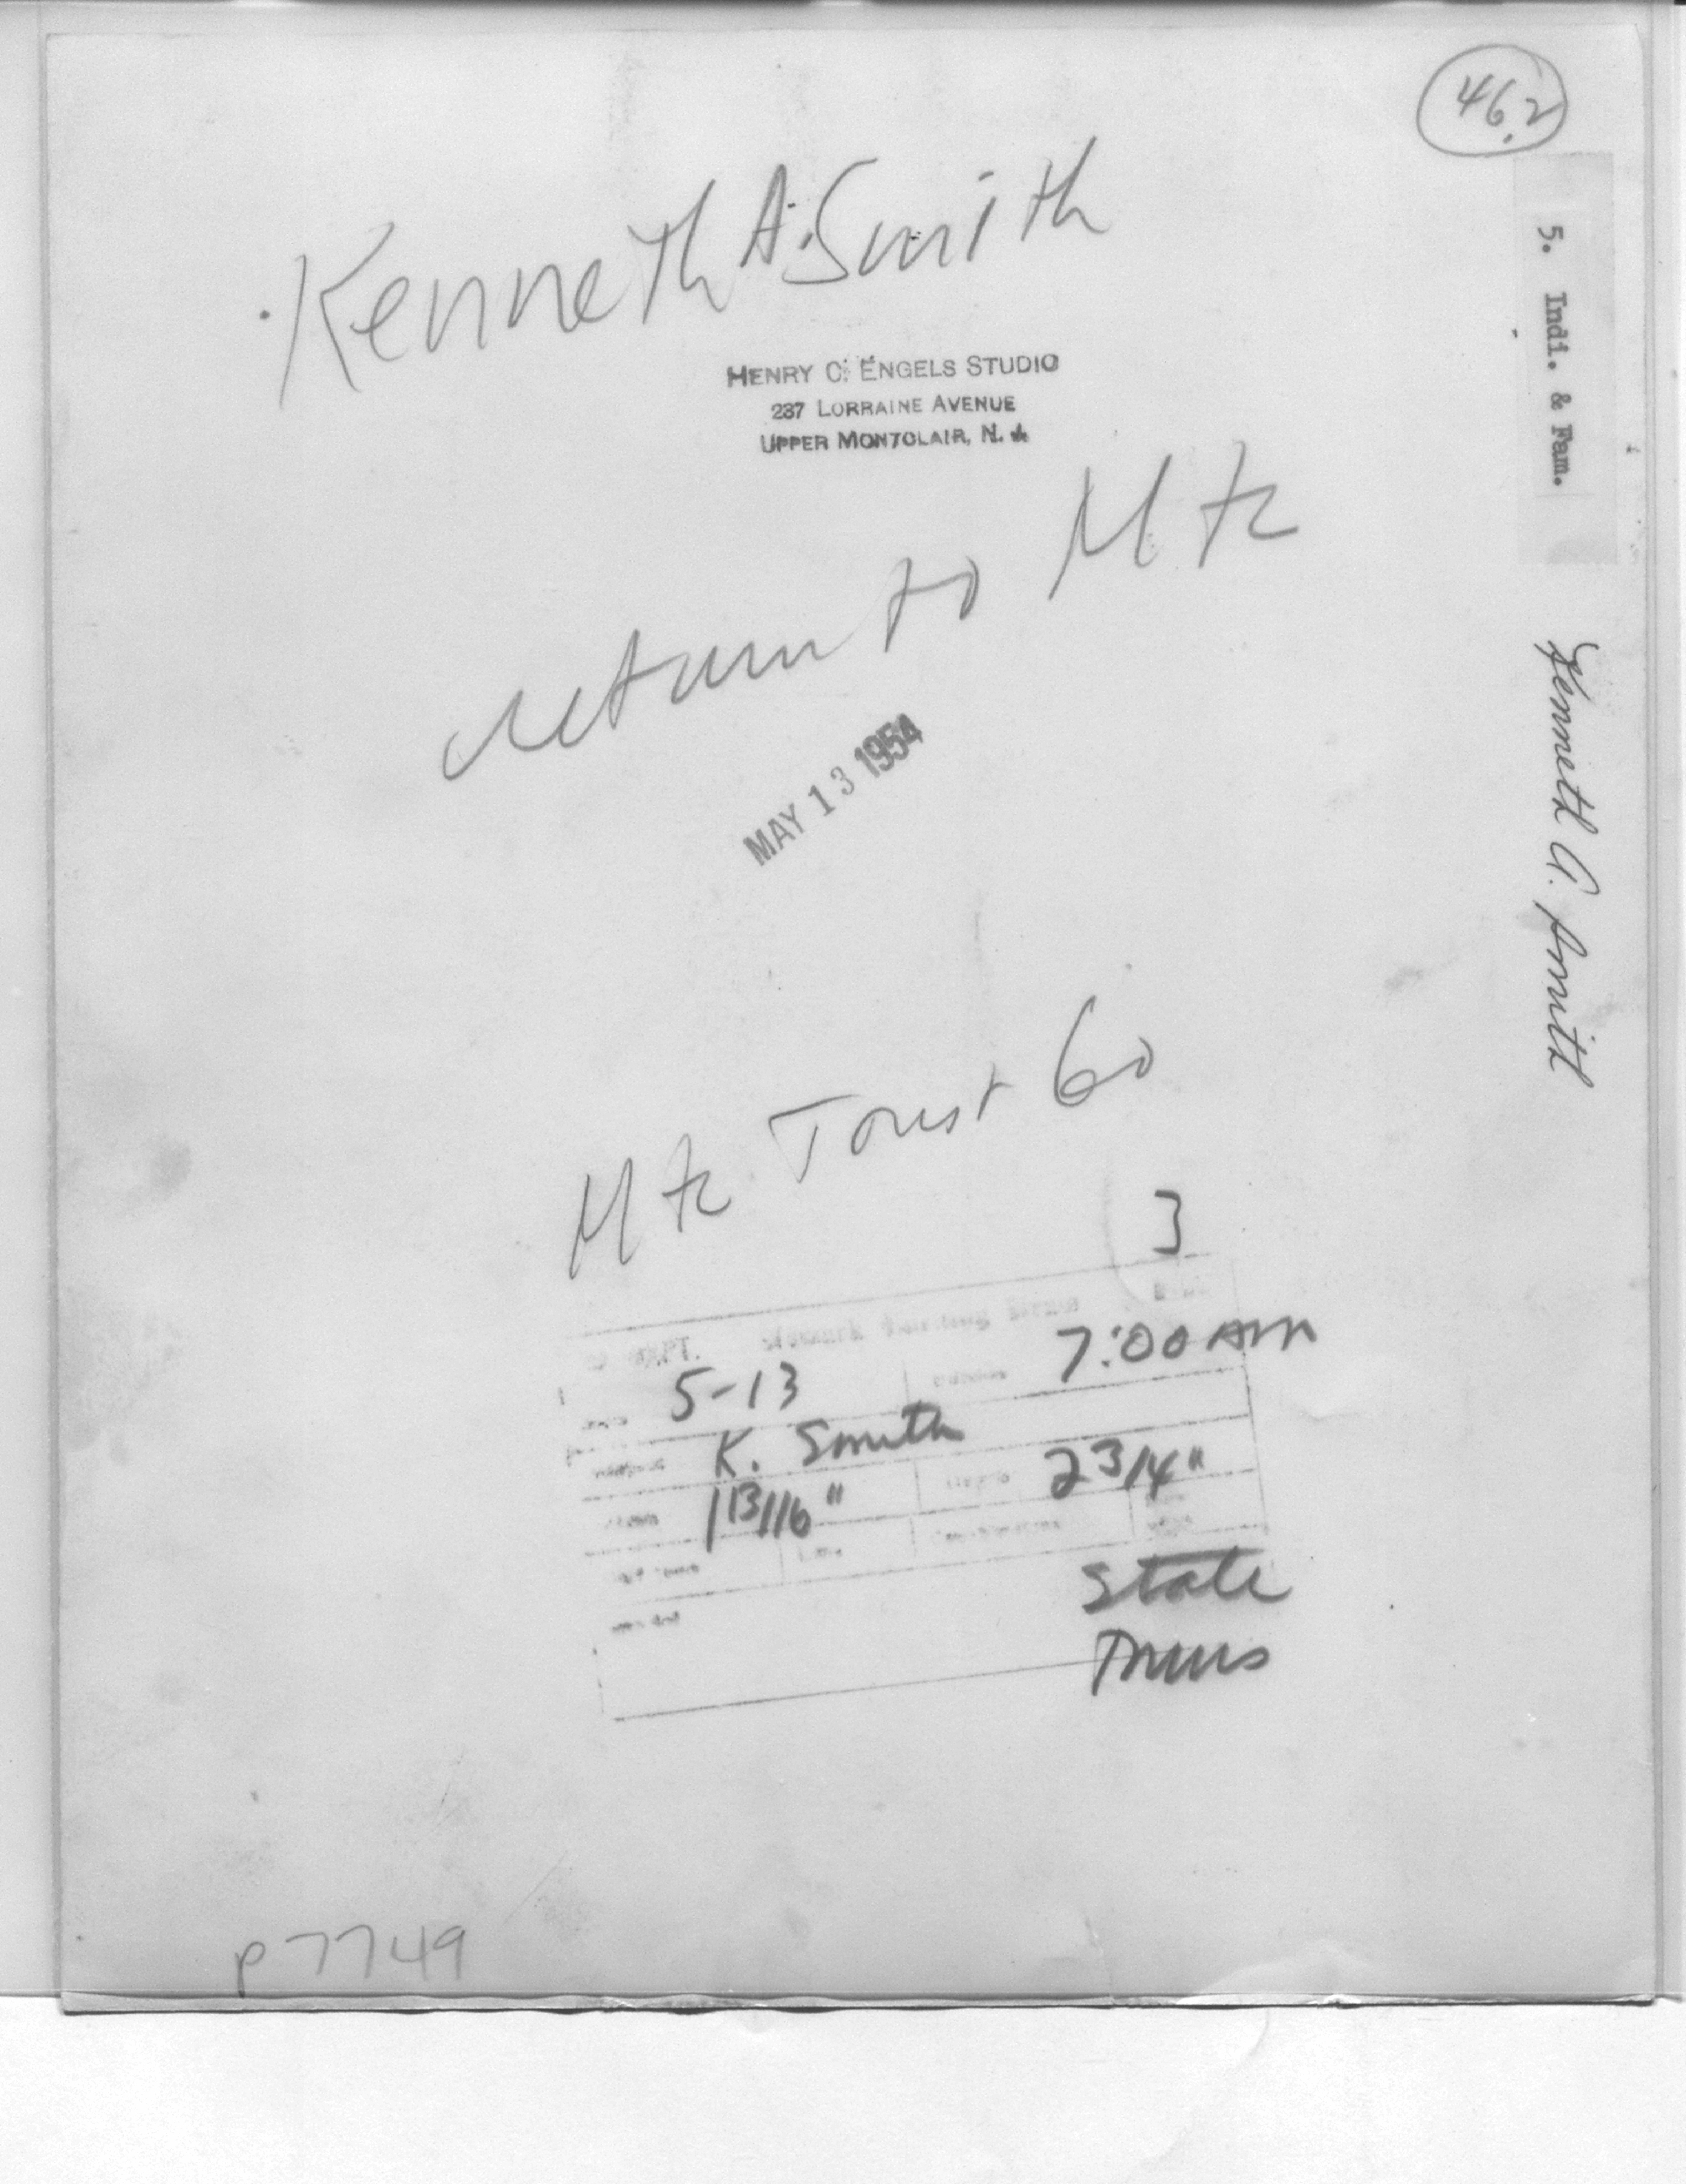 46.2
Kenneth A. Smith
HENRY C. ENGELS STUDIO
237 LORRAINE AVENUE
UPPER MONTCLAIR, N. J.
return to Mtc
MAY 13 1954
Mtc Trust Co
3
DEPT. Newark Evening News
7:00 AM
5-13
K. Smith
1 13/16"
2 3/4"
State
p7749
5. Indi. & Fam.
Kenneth A. Smith